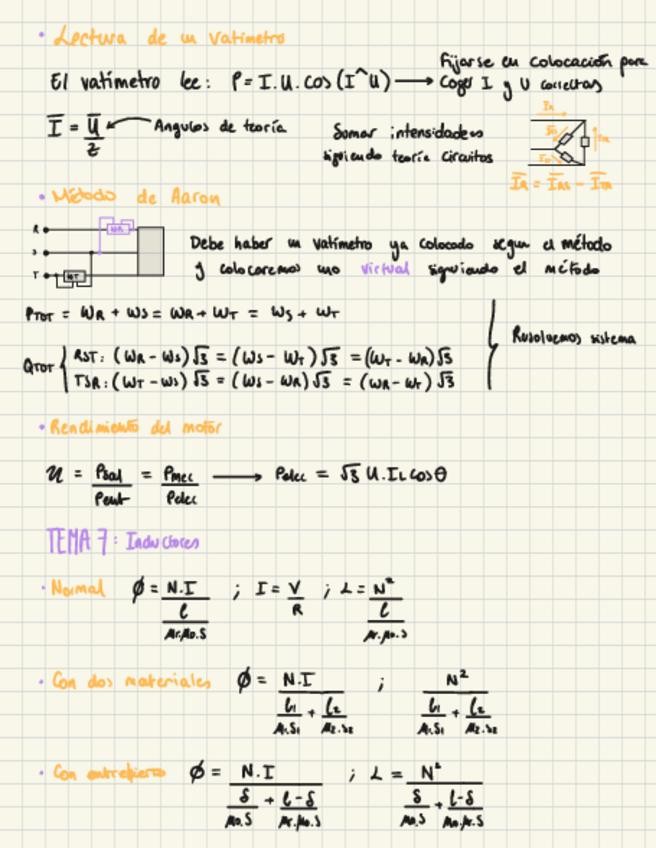 • Lectura de un Vatímetro
Fijarse en colocación para
El vatímetro lee: P = I.U.cos(I^U) → Coger I y U correctas
I̅ = U̅/Z ← Angulos de teoría
Somar intensidades
siguiendo teoría circuitos
I̅R = I̅RS - I̅TR
• Método de Aaron
R
S
T
WR
WT
Debe haber un vatímetro ya colocado segun el método
y colocaremos uno virtual siguiendo el método
PTOT = WR + WS = WR + WT = WS + WT
Resolvemos sistema
QTOT { RST: (WR - WS)√3 = (WS - WT)√3 = (WT - WR)√3
TSR: (WT - WS)√3 = (WS - WR)√3 = (WR - WT)√3
• Rendimiento del motor
η = Psal/Pent = Pmec/Pelec → Pelec = √3 U.IL cosθ
TEMA 7: Inductores
• Normal ϕ = N.I/(l/(μr.μo.S)) ; I = V/R ; L = N²/(l/(μr.μo.S))
• Con dos materiales ϕ = N.I/(l1/(μ1.S1) + l2/(μ2.S2)) ; N²/(l1/(μ1.S1) + l2/(μ2.S2))
• Con entrehierro ϕ = N.I/(δ/(μo.S) + (l-δ)/(μr.μo.S)) ; L = N²/(δ/(μo.S) + (l-δ)/(μo.μr.S))